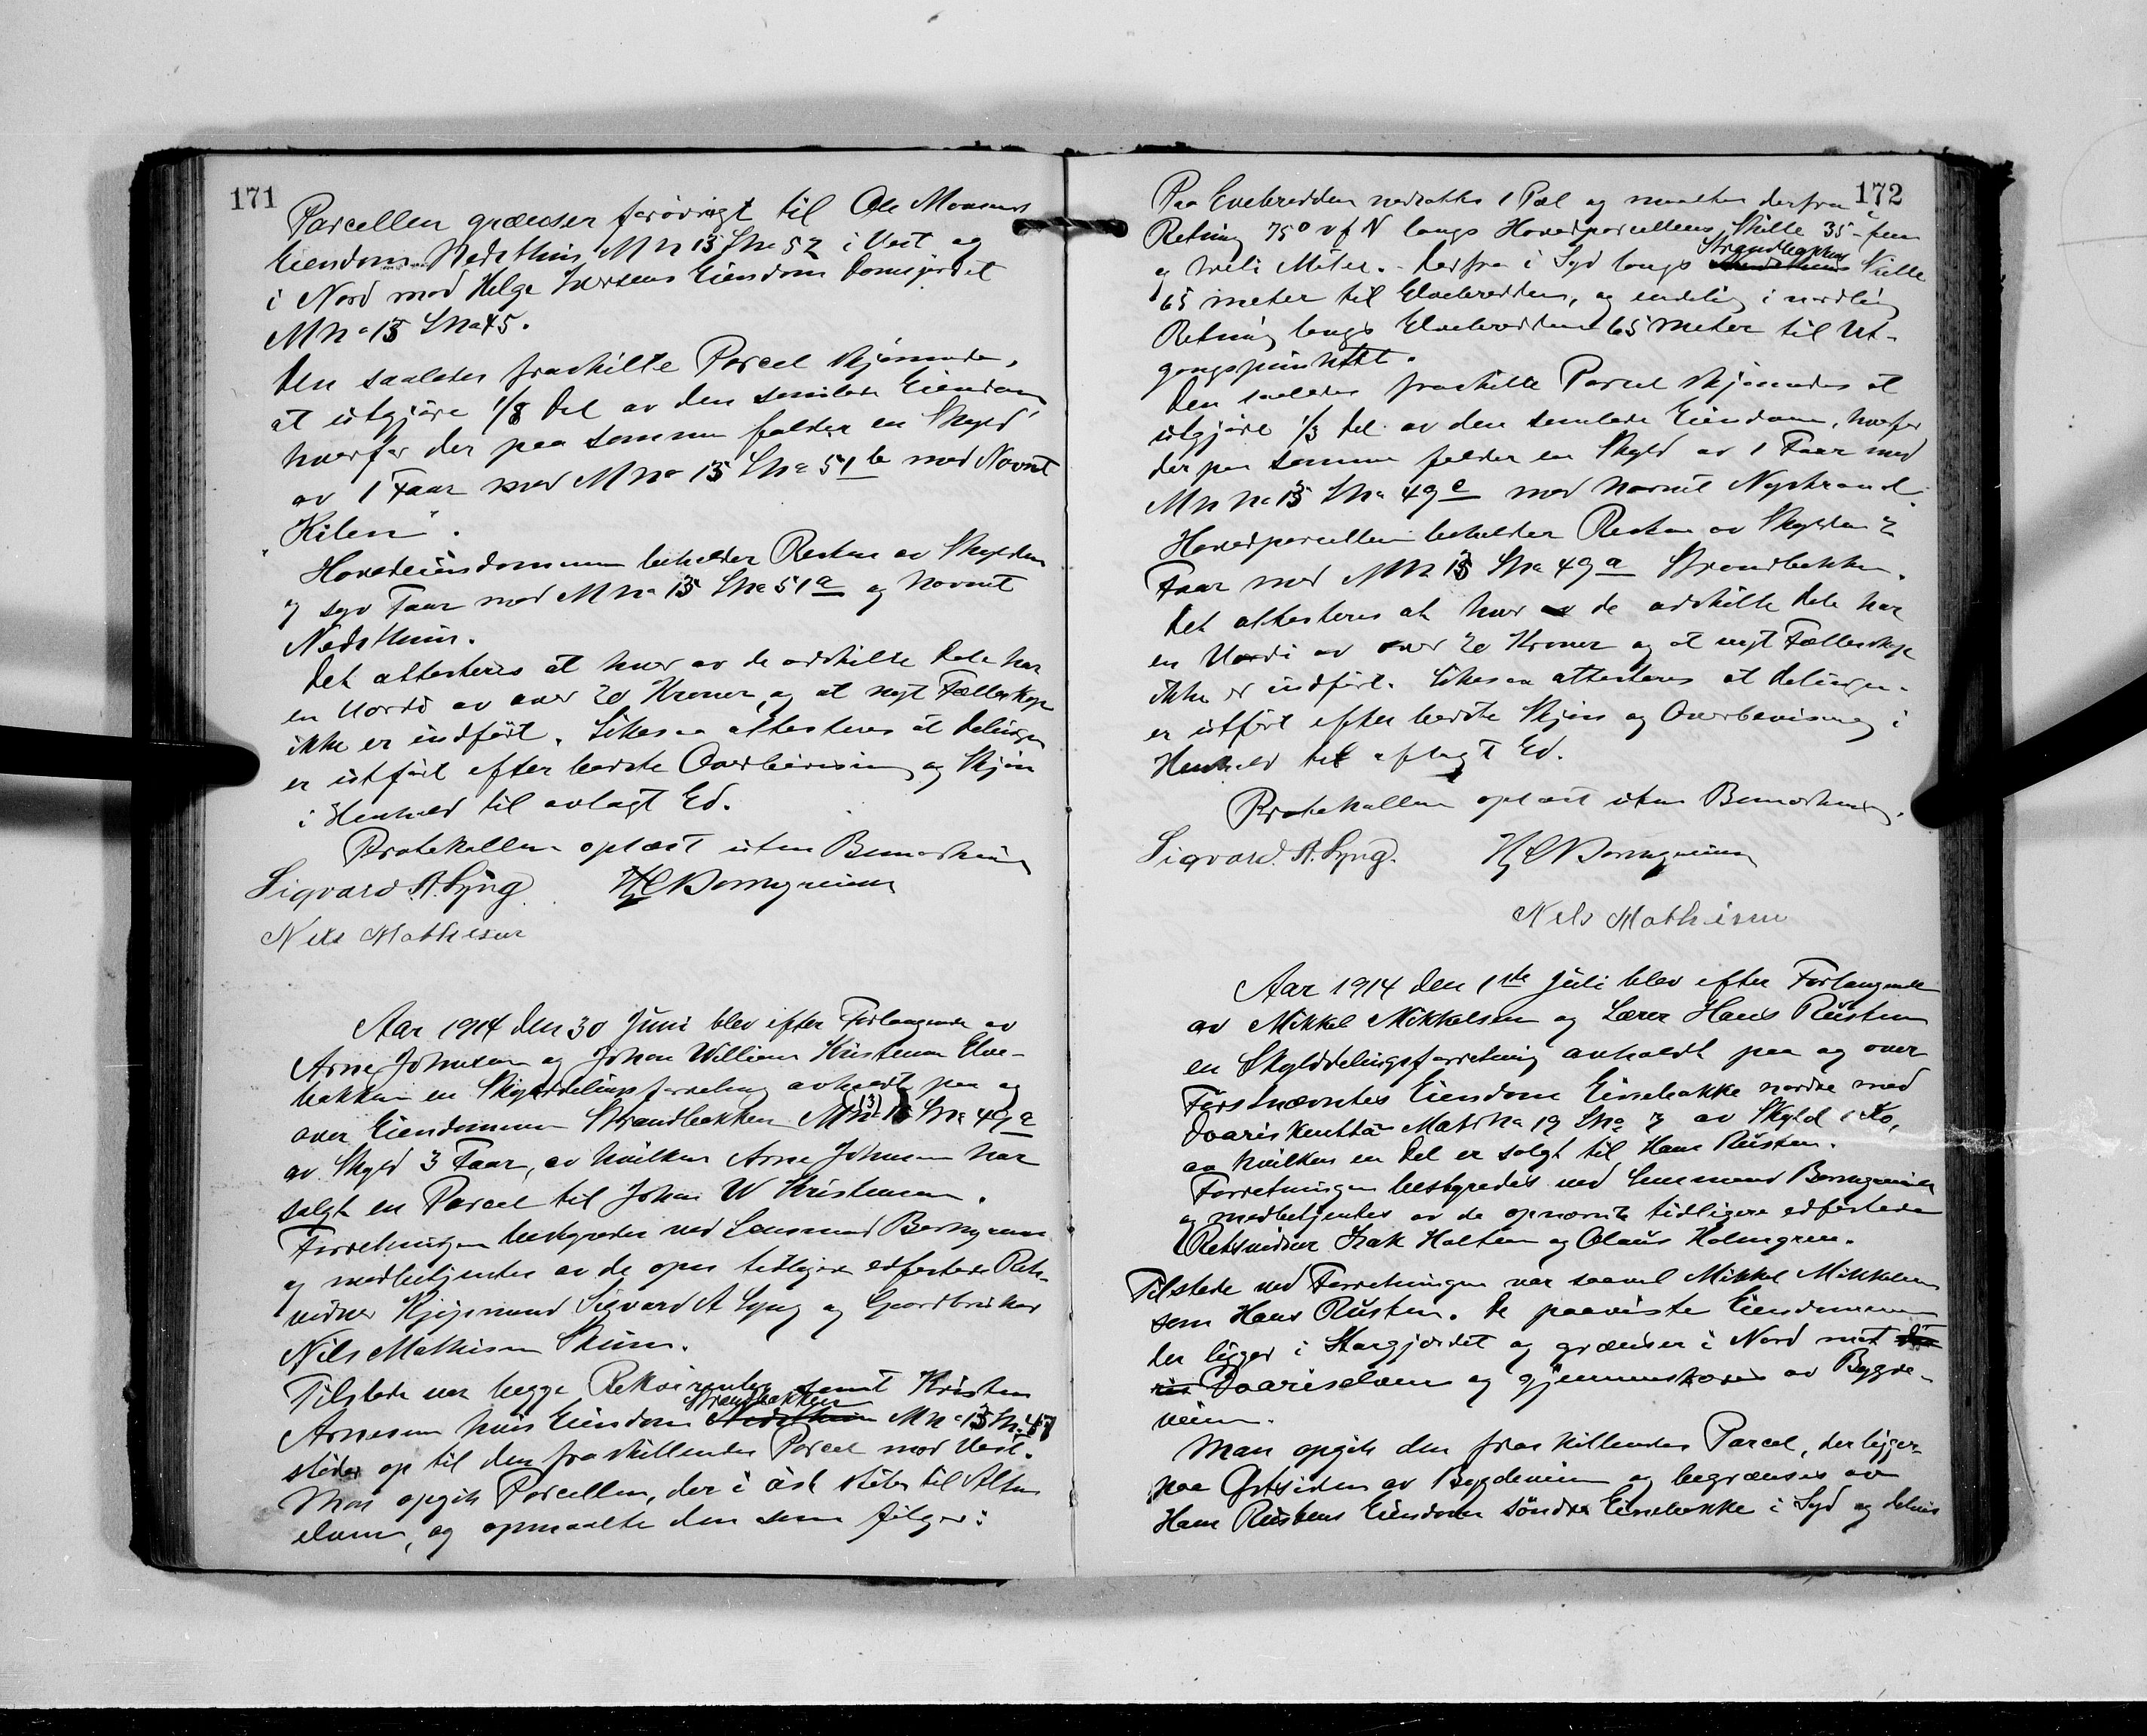 171
Parcellen grænser forövrigt til Ole Monsens
Eiendom Nedsthim, M Nr 13 LNr 52 i Vest og
i Nord mod Helge Iversens Eiendom Domsjordet
M Nr 13 LNr 45.
Den saaledes fraskilte Parcel skjönnedes,
at utgjöre 1/8 Del av den samlede Eiendom
hvorfor der paa samme falder en Skyld
av 1 Faar med M No 13 LNr 51 b med Navnet
"Kilen".
Hovedeiendommen beholder Resten av Skylden
7 syv Faar med M No 13 LNr 51 a og Navnet
Nedsthim.
Det attesteres at hver av de adskilte Dele har
en Værdi av over 20 Kroner, og at nyt Fælleskap
ikke er indfört. Likesaa attesteres at Delingen
er utfört efter bedste Overbevisning og Skjön
i Henhold til avlagt Ed.
Protokollen oplæst uten Bemærkning
Sigvard A. Lyng. H C Borngreim
Nils Mathisen
Aar 1914 den 30 Juni blev efter Forlangende av
Arne Johnsen og Johan William Kristensen Elve-
bakken en Skylddelingsforretning avholdt paa og
over Eiendommen Strandbakken M No 13 (13) LNr 49 a
av Skyld 3 Faar, av hvilken Arne Johnsen har
solgt en Parcel til Johan W Kristensen.
Forretningen bestyredes ved Lensmand Borngreim
og medbetjentes av de opn. tidligere edfæstede Rets-
vidner Kjöpmand Sigvard A Lyng og Gaardbruker
Nils Mathisen Skum.
Tilstede var begge Rekvirenter samt Kristen
Arnesen hvis Eiendom Nedsthim Strandbakken M No 13 LNr 47
stöder op til den fraskillendes Parcel mod Vest.
Man opgik Parcellen, der i öst stöter til Alten
elven, og opmaalte den som fölger:
172
Paa Elvebredden nedsattes 1 Pæl og maaltes derfra i
Retning 75° v f N langs Hovedparcellens Skille 35 - fem
og treti Meter. - Derfra i Syd langs Strandbakkens Skille
65 meter til Elvebredden, og endelig i nordlig
Retning langs Elvebredden 65 meter til Ut-
gangspunktet.
Den saaledes fraskilte Parcel skjönnedes at
utgjöre 1/3 Del av den samlede Eiendom, hvorfor
der paa samme falder en Skyld av 1 Faar med
M N No 13 LNr 49 c med Navnet Nystrand.
Hovedparcellen beholder Resten av Skylden 2
Faar med M Nr 13 LNr 49 a Strandbakken.
Det attesteres at hver av de adskilte Dele har
en Værdi av over 20 Kroner og at nyt Fælleskap
ikke er indfört. Likesaa attesteres at Delingen
er utfört efter bedste Skjön og Overbevisning i
Henhold til aflagt Ed.
Protokollen oplæst uten Bemærkning.
Sigvard. A. Lyng. H C Borngreim
Nils Mathisen
Aar 1914 den 1ste Juli blev efter Forlangende
av Mikkel Mikkelsen og Lærer Hans Rüsten
en Skylddelingsforretning avholdt paa og over
Förstnævntes Eiendom Einebakke nordre med
Doariskenttä Matr No 19 LNo 7 av Skyld 1 Ko,
av hvilken en Del er solgt til Hans Rüsten.
Forretningen bestyredes ved Lensmand Borngreim
og medbetjentes av de opnævnte tidligere edfæstede
Retsvidner Isak Halten og Olaus Holmgren.
Tilstede ved Forretningen var saavel Mikkel Mikkelsen
som Hans Rüsten. De paaviste Eiendommen
der ligger i Storgjordet og grænser i Nord mot
Doariselven og gjennemskjæres av Bygde-
veien.
Man opgik den fraskillendes Parcel, der ligger
paa Östsiden av Bygdeveien og begrænses av
Hans Rüstens Eiendom söndre Einebakke i Syd og delvis